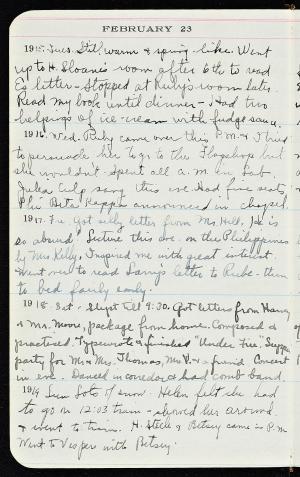 FEBRUARY 23
1915. Tues. Still warm & spring-like. Went
up to H. Sloane's room after 6th to read
E's letter - Stopped at Ruby's room later.
Read my book until dinner - Had two
helpings of ice-cream with fudge sauce.
1916. Wed. Ruby came over this P.M. & I tried
to persuade her to go to the but
she wouldn't. Spent all a.m. in Lab.
Julia Culp sang this eve. Had fine seats.
Phi Beta Kappa announced in chapel.
1917. Fri. Got silly letter from Mr. Hill, Joe is
so absurd. Lecture this eve. on the Philippines
by Mrs. Kelly. Inspired me with great interest.
Went to read letter to Rube - then
to bed fairly early.
1918. Sat - Slept till 9:30. Got letters from Harry
& Mr. Moore, package from home. Composed &
practised. Typewrote & finished "Under Fire". Supper
party for Mr & Mrs. Thomas, & a friend. Concert
in eve. Danced in corridor & had comb band.
1919 Sun Lots of snow. Helen felt she had
to go on 12:03 train - showed her around
& went to train. H. Steele & Betsey came in P.M.
Went to Vespers with Betsey.